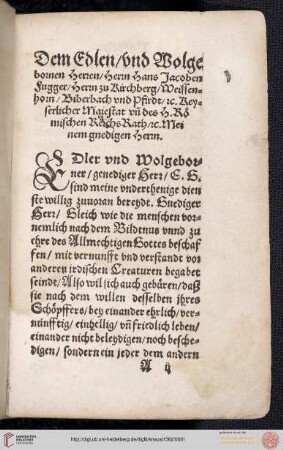 Dem Edlen/vnd Wolge
bornen Herren/Herrn Hans Jacoben
Fugger/Herrn zu Kirchberg/Weissen-
horn/Biberbach vnd Pfirdt/ꝛc. Key-
serlicher Maiestat vñ des H. Rö
mischen Reichs Rath/ꝛc. Mei
nem gnedigen Herrn.
EDler vnd Wolgebor-
ner/genediger Herr/E. G.
sind meine vnderthenige dien
ste willig zuuoran bereydt. Gnediger
Herr/Gleich wie die menschen vor-
nemlich nach dem Bildtnus vnnd zu
ehre des Allmechtigen Gottes beschaf
fen/mit vernunfft vnd verstandt vor
anderen irdischen Creaturen begabet
seindt/Also wil sich auch gebüren/daß
sie nach dem willen desselben jhres
Schöpffers/bey einander ehrlich/ver-
nünfftig/einhellig/vñ friedlich leben/
einander nicht beleydigen/noch besche-
digen/sondern ein jeder dem andern
A ij